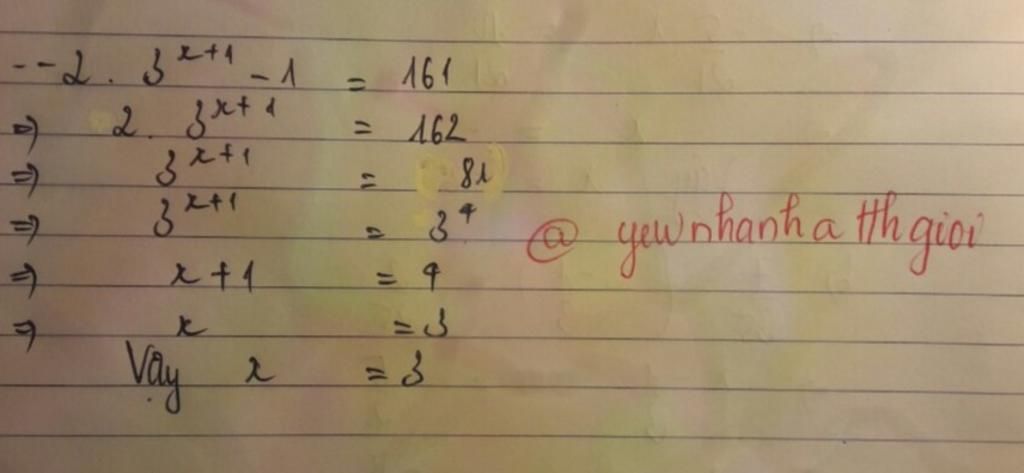 -- 2 . 3^{x+1} - 1 = 161
=> 2 . 3^{x+1} = 162
=> 3^{x+1} = 81
=> 3^{x+1} = 3^4
=> x + 1 = 4
=> x = 3
Vậy x = 3
@ yewnhanhatthgioi